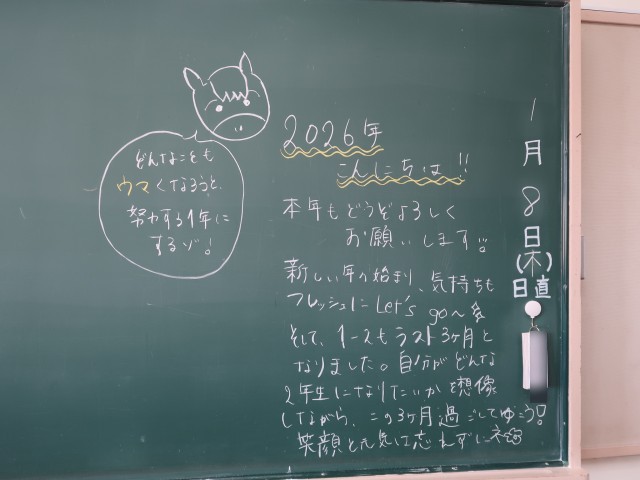 1月8日(木)
日直
2026年
こんにちは!!
本年もどうぞよろしく
お願いします!!
新しい年の始まり、気持ちも
フレッシュにLet's go〜
そして、1-2もラスト3ヶ月と
なりました。自分がどんな
2年生になりたいかを想像
しながら、この3ヶ月過ごしてゆこう!
笑顔と元気は忘れずにネ
どんなことも
ウマくなろうと、
努力する1年に
するゾ!